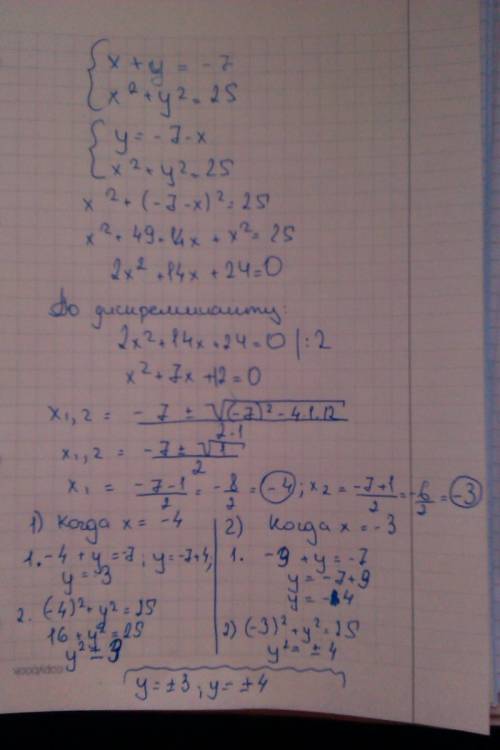 x + y = -7
x² + y² = 25
y = -7 - x
x² + y² = 25
x² + (-7-x)² = 25
x² + 49 + 14x + x² = 25
2x² + 14x + 24 = 0
По дискреминанту:
2x² + 14x + 24 = 0 |:2
x² + 7x + 12 = 0
x₁,₂ = (-7 ± √((-7)² - 4·1·12))/(2·1)
x₁,₂ = (-7 ± √1)/2
x₁ = (-7-1)/2 = -8/2 = -4; x₂ = (-7+1)/2 = -6/2 = -3
1) Когда x = -4
1. -4 + y = -7; y = -7+4;
y = -3
2. (-4)² + y² = 25
16 + y² = 25
y² = ± 9
2) Когда x = -3
1. -9 + y = -7
y = -7+9
y = -4
2) (-3)² + y² = 25
y² = ± 4
y = ±3; y = ±4